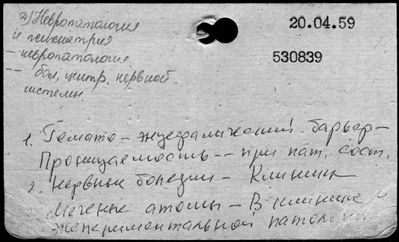 а) Невропатология
20.04.59
и психиатрия
-- невропатология
530839
-- бол. центр. нервной
системы
1. Гемато-энцефалический барьер --
Проницаемость -- при пат. сост.
2. Нервные болезни -- Клиника
Меченые атомы -- В клинике и
экспериментальной патологии